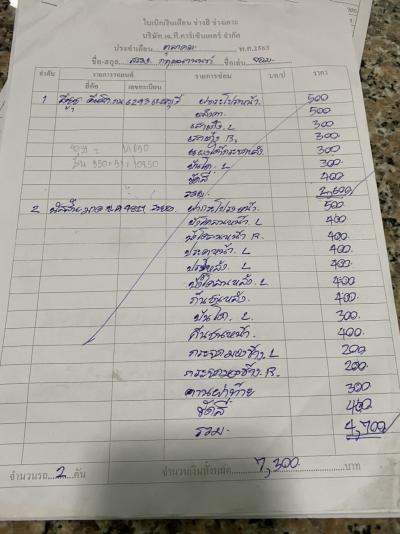 ใบเบิกเงินเดือน ช่างสี ช่างเคาะ
บริษัท เจ.ที.คาร์เซ็นเตอร์ จำกัด
ประจำเดือน ตุลาคม พ.ศ.2563
ชื่อ-สกุล ชื่อเล่น
ลำดับ รายการรถยนต์ รายการซ่อม บ/ป ราคา
ยี่ห้อ เลขทะเบียน
1 อีซูซุ 6293 ฝากระโปรงหน้า 500
หลังคา 500
เสาเก๋ง L 300
เสาเก๋ง R. 300
300
บันได L 300
ขัดสี 400
รวม 2,600
2 ฝากระโปรงหน้า 500
บังโคลนหน้า L 400
บังโคลนหน้า R. 400
ประตูหน้า L 400
ประตูหลัง L 400
บังโคลนหลัง L 400
กันชนหลัง 400
บันได L. 300
กันชนหน้า 400
กระจกมองข้าง L 200
กระจกมองข้าง R. 200
คานฝาท้าย 300
ขัดสี 400
รวม 4,700
จำนวนรถ 2 คัน จำนวนเงินทั้งหมด 7,300 บาท